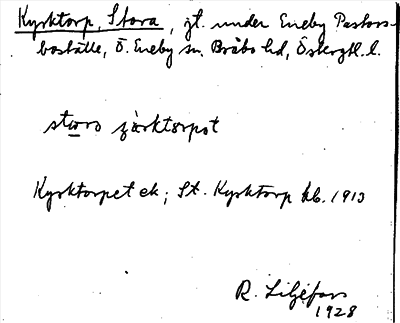 Kyrktorp, Stora, jt. under Eneby Pastors-
boställe, Ö. Eneby sn. Bråbo hd, Östergtl. l.
stora
Kyrktorpet ek; St. Kyrktorp kb. 1913
R. Liljefors
1928